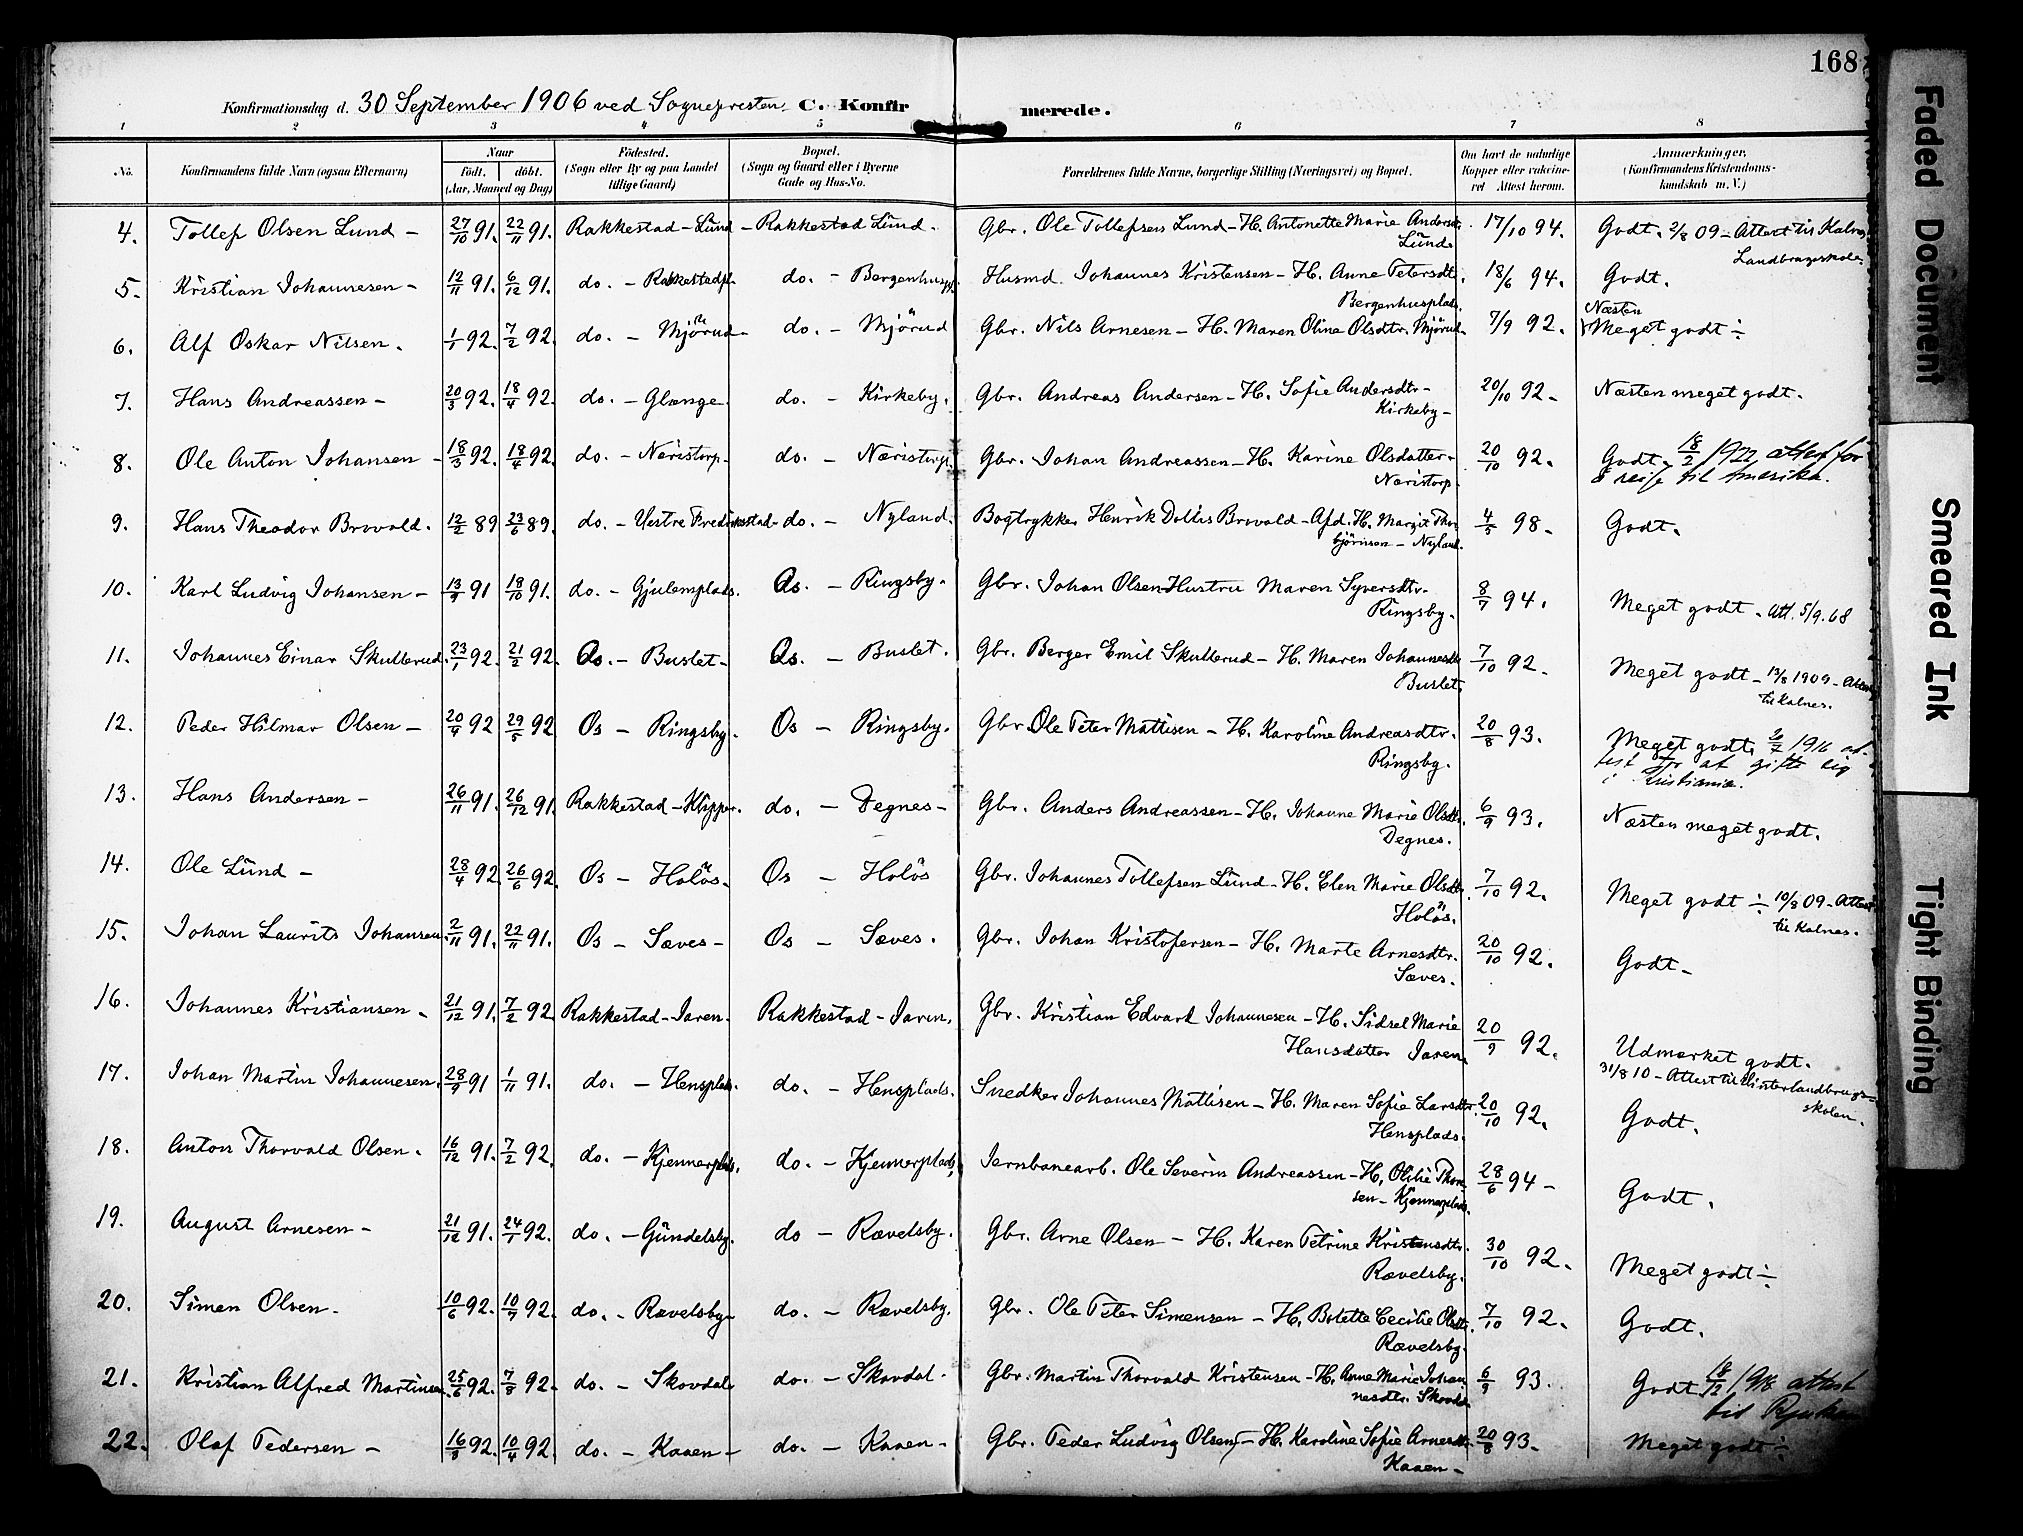 168
Konfirmationsdag d. 30 September 1906 ved Sognepresten. C. Konfirmerede.
1 2 3 4 5 6 7 8
No. Konfirmandens fulde Navn (ogsaa Efternavn) Naar Født. døbt. (Aar, Maaned og Dag) Fødested. (Sogn eller By og paa Landet tillige Gaard) Bopæl. (Sogn og Gaard eller i Byerne Gade og Hus-No. Forældrenes fulde Navne, borgerlige Stilling (Næringsvei) og Bopæl. Om havt de naturlige Kopper eller vakcineret Attest herom. Anmærkninger. (Konfirmandens Kristendomskundskab m. V.)
4. Tollef Olsen Lund – 27/10 91. 22/11 91. Rakkestad – Lund – Rakkestad Lund. Gbr. Ole Tollefsen Lund – H. Antonette Marie Andersdt. 17/10 94. Godt. 2/8 09 – Attest til Kalnes
Lund. Landbrugsskole.
5. Kristian Johannesen – 12/11 91. 6/12 91. do. – Rakkestadpl. do. – Bergenhuspl. Husmd. Johannes Kristensen – H. Anne Petersdt. 18/6 94. Godt.
Bergenhusplads. Næsten
6. Alf Oskar Nilsen. 1/1 92. 7/2 92. do. – Mjörud do. – Mjörud Gbr. Nils Arnesen – H. Maren Oline Olsdtr. Mjörud. 7/9 92. Meget godt ÷
7. Hans Andreassen – 20/3 92. 18/4 92. do. – Glænge do. – Kirkeby. Gbr. Andreas Andersen – H. Sofie Andersdtr – 20/10 92 – Næsten meget godt.
Kirkeby –
8. Ole Anton Johansen – 18/3 92. 18/4 92. do. – Næristorp. do. – Næristorp. Gbr. Johan Andreassen – H. Karine Olsdatter – 20/10 92. Godt. 18/2 1922 attest for
Næristorp. å reise til Amerika.
9. Hans Theodor Brovold. 12/2 89 23/6 89. do. – Vestre Fredrikstad – do. – Nyland. Bogtrykker Henrik Dollis Brovold – Afd. H. Margit Thor 4/5 98 – Godt.
björnsen – Nyland.
10. Karl Ludvig Johansen – 13/9 91 18/10 91. do. – Gjulemplads. Os. – Ringsby. Gbr. Johan Olsen Hustru Maren Syversdtr. 8/7 94. Meget godt. Att. 5/9.68
Ringsby.
11. Johannes Einar Skulterud. 23/1 92. 21/2 92. Os. – Buslet – Os. – Buslet. Gbr. Berger Emil Skulterud – H. Maren Johannesdt. 7/10 92 – Meget godt – 13/8 1909 – Attest
Buslet. til Kalnes.
12. Peder Hilmar Olsen – 20/4 92 29/5 92 Os – Ringsby. Os – Ringsby. Gbr. Ole Peter Mattisen – H. Karoline Andreasdtr. 20/8 93. Meget godt. 1916 at-
Ringsby. test for at gifte sig
i Kristiania.
13. Hans Andersen – 26/11 91. 26/12 91. Rakkestad – Klipper. do. – Degnes – Gbr. Anders Andreassen – H. Johanne Marie Olsdt. 6/9 93. Næsten meget godt.
Degnes.
14. Ole Lund – 28/4 92 26/6 92. Os – Holös. Os – Holös Gbr. Johannes Tollefsen Lund – H. Elen Marie Olsdt. 7/10 92. Meget godt ÷ 10/8 09 – Attest
Holös. til Kalnes.
15. Johan Laurits Johansen. 2/11 91. 22/11 91. Os – Sæves – Os – Sæves. Gbr. Johan Kristofersen – H. Marte Arnesdtr. 20/10 92. Godt –
Sæves.
16. Johannes Kristiansen – 21/12 91. 7/2 92. Rakkestad – Jaren. Rakkestad – Jaren. Gbr. Kristian Edvart Johannesen – H. Sidsel Marie 20/9 92. Udmærket godt.
Hansdatter Jaren. 31/8 10 – Attest til Vinterlandbrugs-
skolen.
17. Johan Martin Johannesen. 28/9 91 1/11 91. do. – Hensplads. do. – Hensplads. Snedker Johannes Mattisen – H. Maren Sofie Larsdtr. 20/10 92. Godt.
Hensplads.
18. Anton Thorvald Olsen. 16/12 91. 7/2 92. do. – Kjennerplads. do. – Kjennerplads. Jernbanearb. Ole Severin Andreassen – H. Otilie Thor 28/6 94 – Godt.
sen – Kjennerplads.
19. August Arnesen – 21/12 91. 24/1 92. do. – Gundelsby. do – Rævelsby. Gbr. Arne Olsen – H. Karen Petrine Kristensdtr. 30/10 92. Meget godt ÷
Rævelsby.
20. Simen Olsen – 10/6 92. 10/7 92. do. – Rævelsby – do. – Rævelsby. Gbr. Ole Peter Simensen – H. Bolette Cecilie Olsdt. 7/10 92. Godt.
Rævelsby.
21. Kristian Alfred Martinsen. 25/6 92. 7/8 92. do. – Skovdal do. – Skovdal. Gbr. Martin Thorvald Kristensen – H. Anne Marie Johan 6/9 93. Godt 18/12 1918 attest
nesdtr. Skovdal til Rjukan
22. Olaf Pedersen – 16/3 92. 10/4 92. do. – Kaaen – do. – Kaaen – Gbr. Peder Ludvig Olsen – H. Karoline Sofie Arnesdt. 20/8 93. Meget godt ÷
Kaaen –
Faded Document
Smeared Ink
Tight Binding